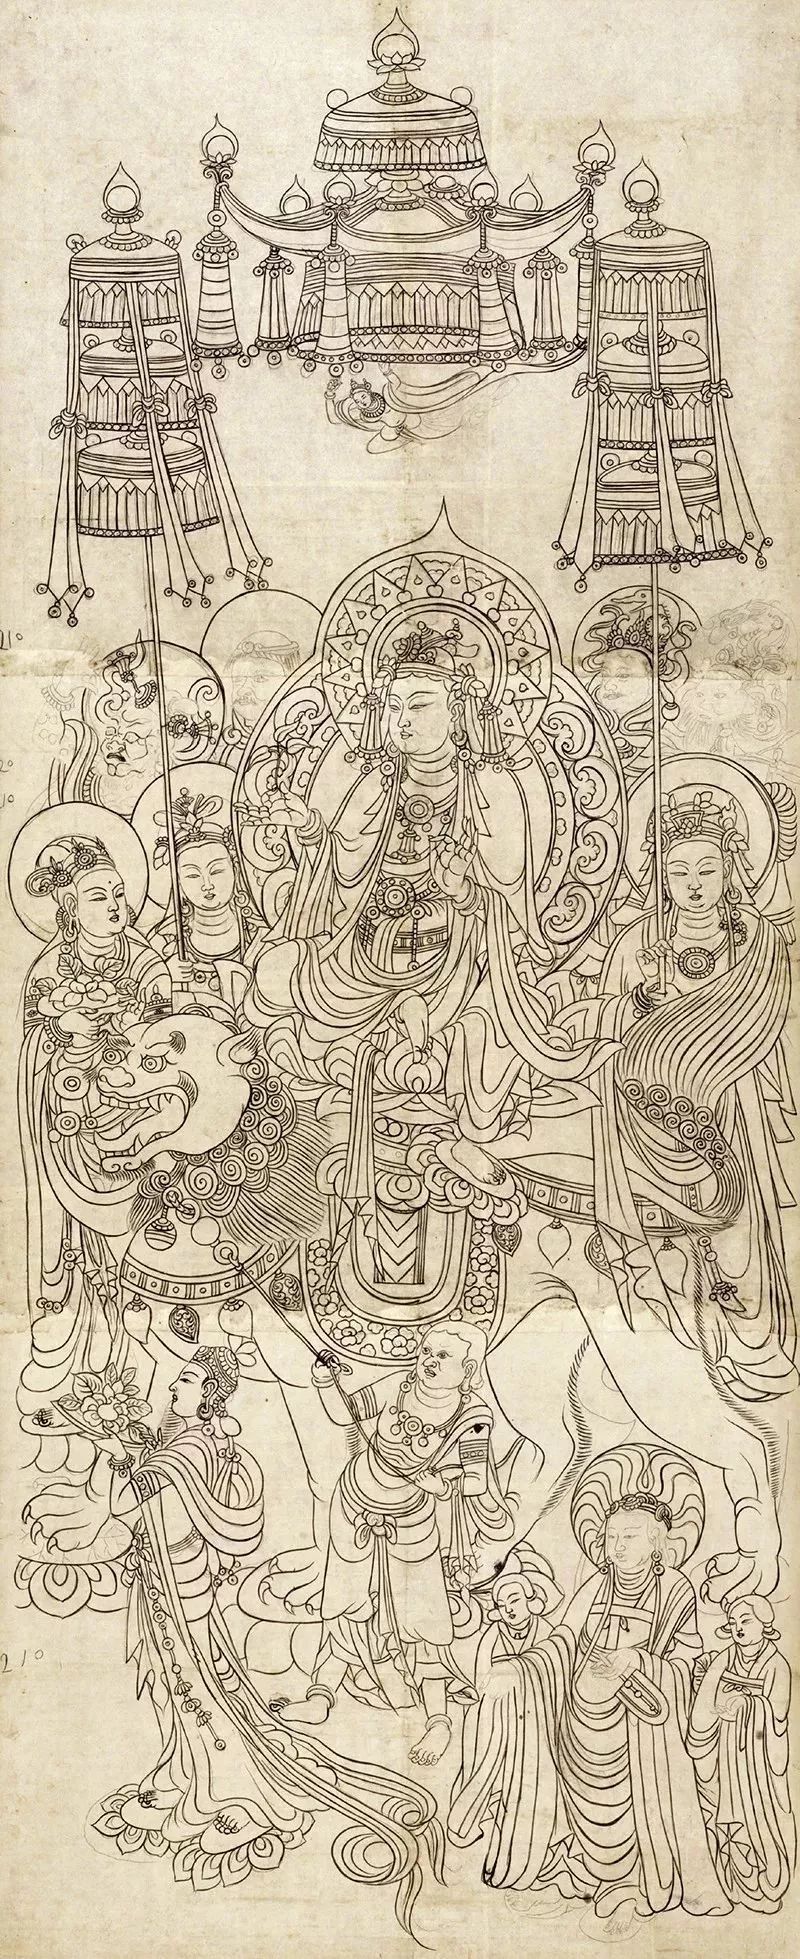 210
20
10
210